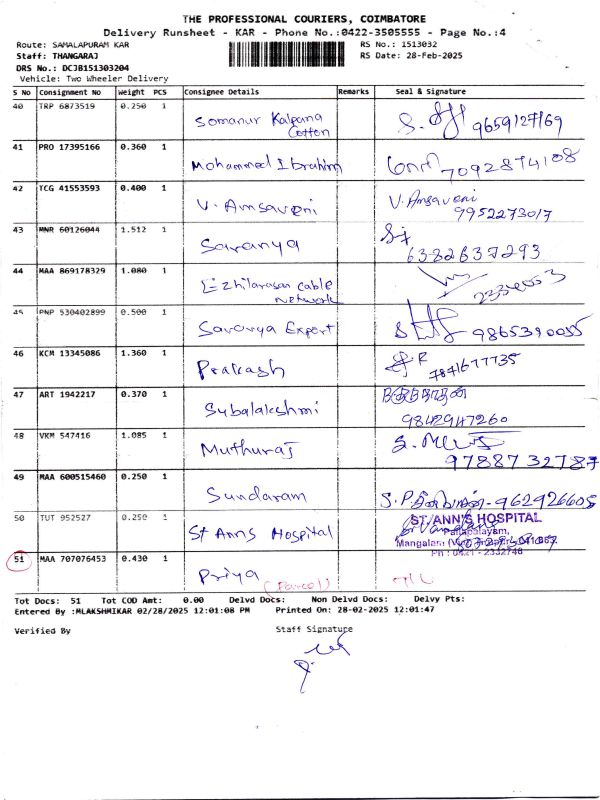 THE PROFESSIONAL COURIERS, COIMBATORE
Delivery Runsheet - KAR - Phone No.:0422-3505555 - Page No.:4
Route: SAMALAPURAM KAR
RS No.: 1513032
Staff: THANGARAJ
RS Date: 28-Feb-2025
DRS No.: DCJB151303204
Vehicle: Two Wheeler Delivery
S No Consignment No Weight PCS Consignee Details Remarks Seal & Signature
40 TRP 6873519 0.250 1
Somanur Kalpana Cotton 9659127169
41 PRO 17395166 0.360 1
Mohammed Ibrahim 7092874108
42 TCG 41553593 0.400 1
V. Amsaveni V. Amsaveni
9952273017
43 MNR 60126044 1.512 1
Saranya 6382637293
44 MAA 869178329 1.080 1
Ezhilarasan cable
network 2334053
45 PNP 530402899 0.500 1
Saranya Export 9865390055
46 KCM 13345086 1.360 1
Prakash 7871677735
47 ART 1942217 0.370 1
Subalakshmi 9842947260
48 VKM 547416 1.085 1
Muthuraj 9788732787
49 MAA 600515460 0.250 1
Sundaram 962926605
50 TUT 952527 0.250 1
St Anns Hospital ST. ANN'S HOSPITAL
Ph : 0421 - 2332748
51 MAA 707076453 0.430 1
Priya (Parcel)
Tot Docs: 51 Tot COD Amt: 0.00 Delvd Docs: Non Delvd Docs: Delvy Pts:
Entered By :MLAKSHMIKAR 02/28/2025 12:01:08 PM Printed On: 28-02-2025 12:01:47
Verified By Staff Signature